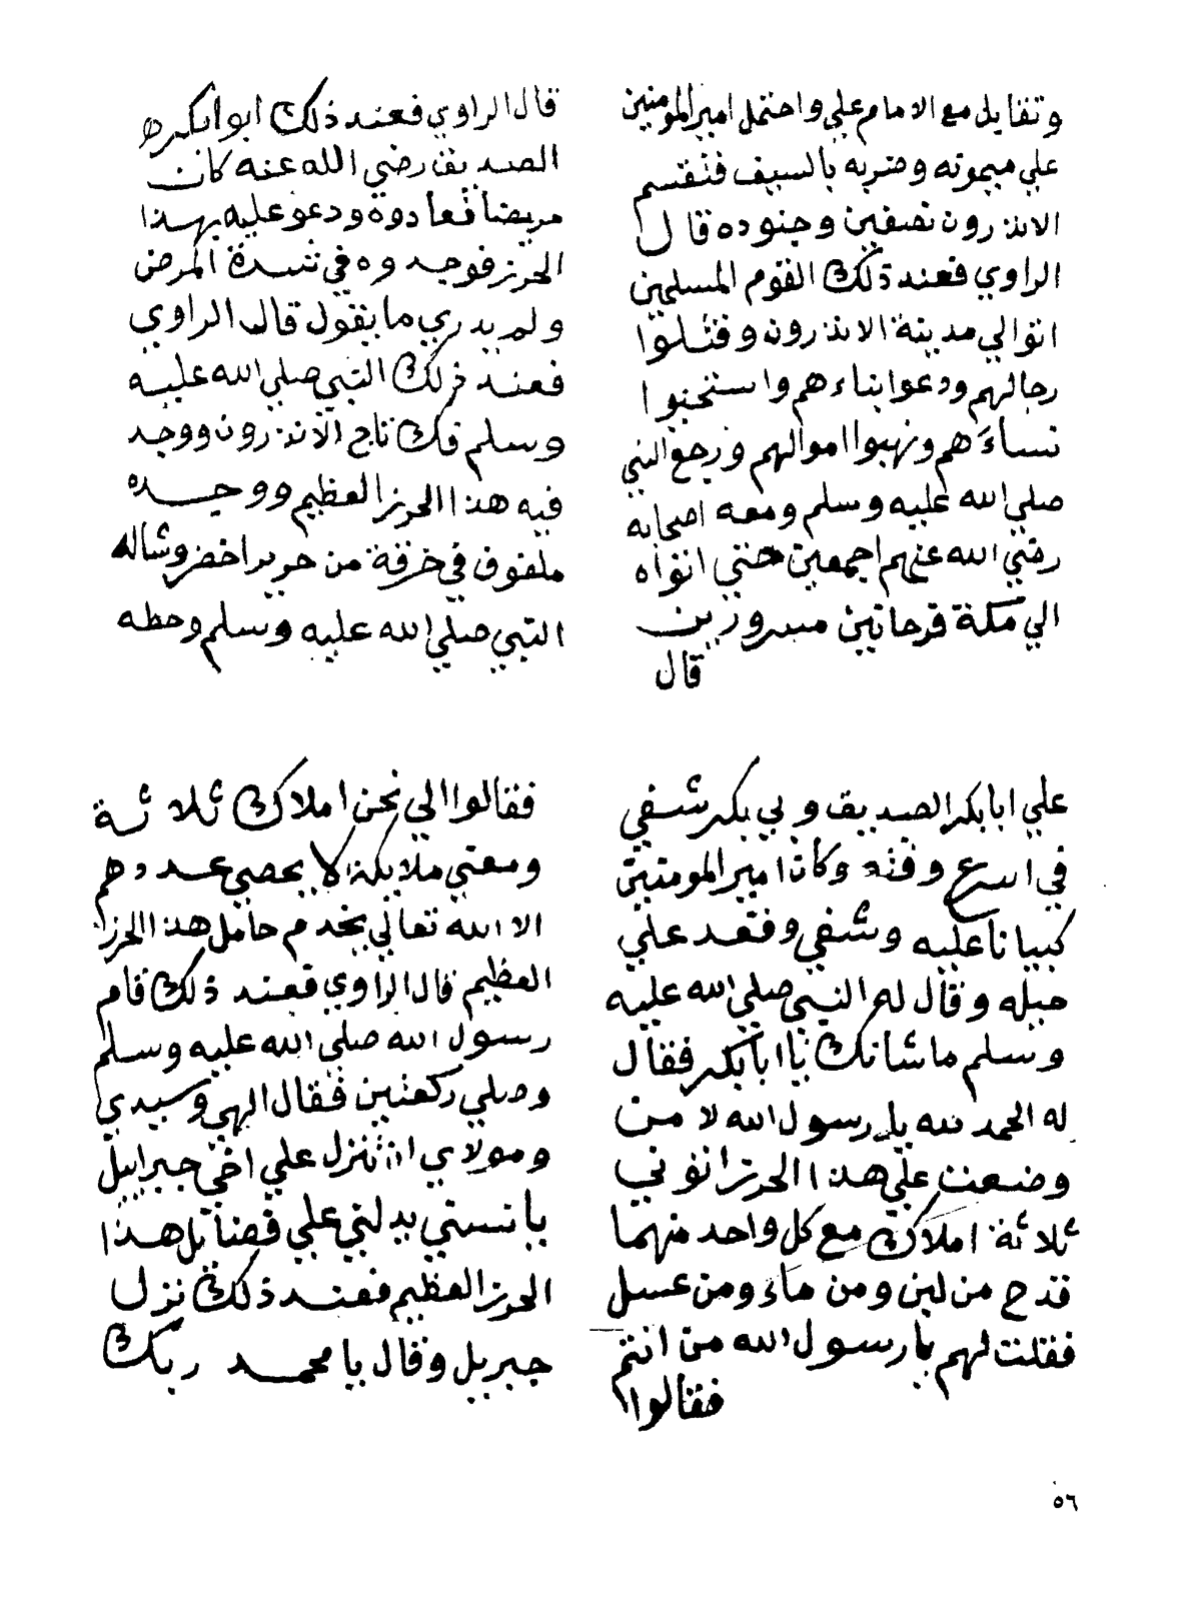 وتقابل مع الامام علي واحتمل امير المومنين
علي ميمونه وضربه بالسيف فنقسم
الاندرون نصفين وجنوده قال
الراوي فعند ذلك القوم المسلمين
اتوا لي مدينة الاندرون وقتلوا
رجالهم ودعوا ابناءهم واستنحبوا
نساءَهم ونهبوا اموالهم ورجع النبي
صلي الله عليه وسلم ومعه اصحابه
رضي الله عنهم اجمعين حتي اتواه
الي مكة فرحانين مسرورين
قال
قال الراوي فعند ذلك ابوا بكره
الصديق رضي الله عنه كان
مريضا فعادوه ودعو عليه بهذا
الحرز فوجدوه في شدة المرض
ولم يدري ما يقول قال الراوي
فعند ذلك النبي صلي الله عليه
وسلم فك تاج الاندرون ووجد
فيه هذا الحرز العظيم ووجده
ملفوف في خرقة من حرير اخضر وشاله
النبي صلي الله عليه وسلم وحطه
علي ابا بكر الصديق وبي بكر شفي
في اسرع وقته وكان امير المومنين
كبيانا عليه وشفي وقعد علي
حيله وقال له النبي صلي الله عليه
وسلم ما شانك يا ابا بكر فقال
له الحمد لله يا رسول الله لا من
وضعت علي هذا الحرز اتوني
ثلاثة املاك مع كل واحد منهما
قدح من لبن ومن ماء ومن عسل
فقلت لهم يا رسول الله من انتم
فقالوا
فقالوا الي نحن املاك ثلاثة
ومعني ملايكة لا يحصي عددهم
الا الله تعالي يخدم حامل هذا الحرز
العظيم قال الراوي فعند ذلك قام
رسول الله صلي الله عليه وسلم
وصلي ركعتين فقال الهي وسيدي
ومولاي ان تنزل علي اخي جبرايل
يانسني يدلني علي فضائل هذا
الحرز العظيم فعند ذلك نزل
جبريل وقال يا محمد ربك
٥٦